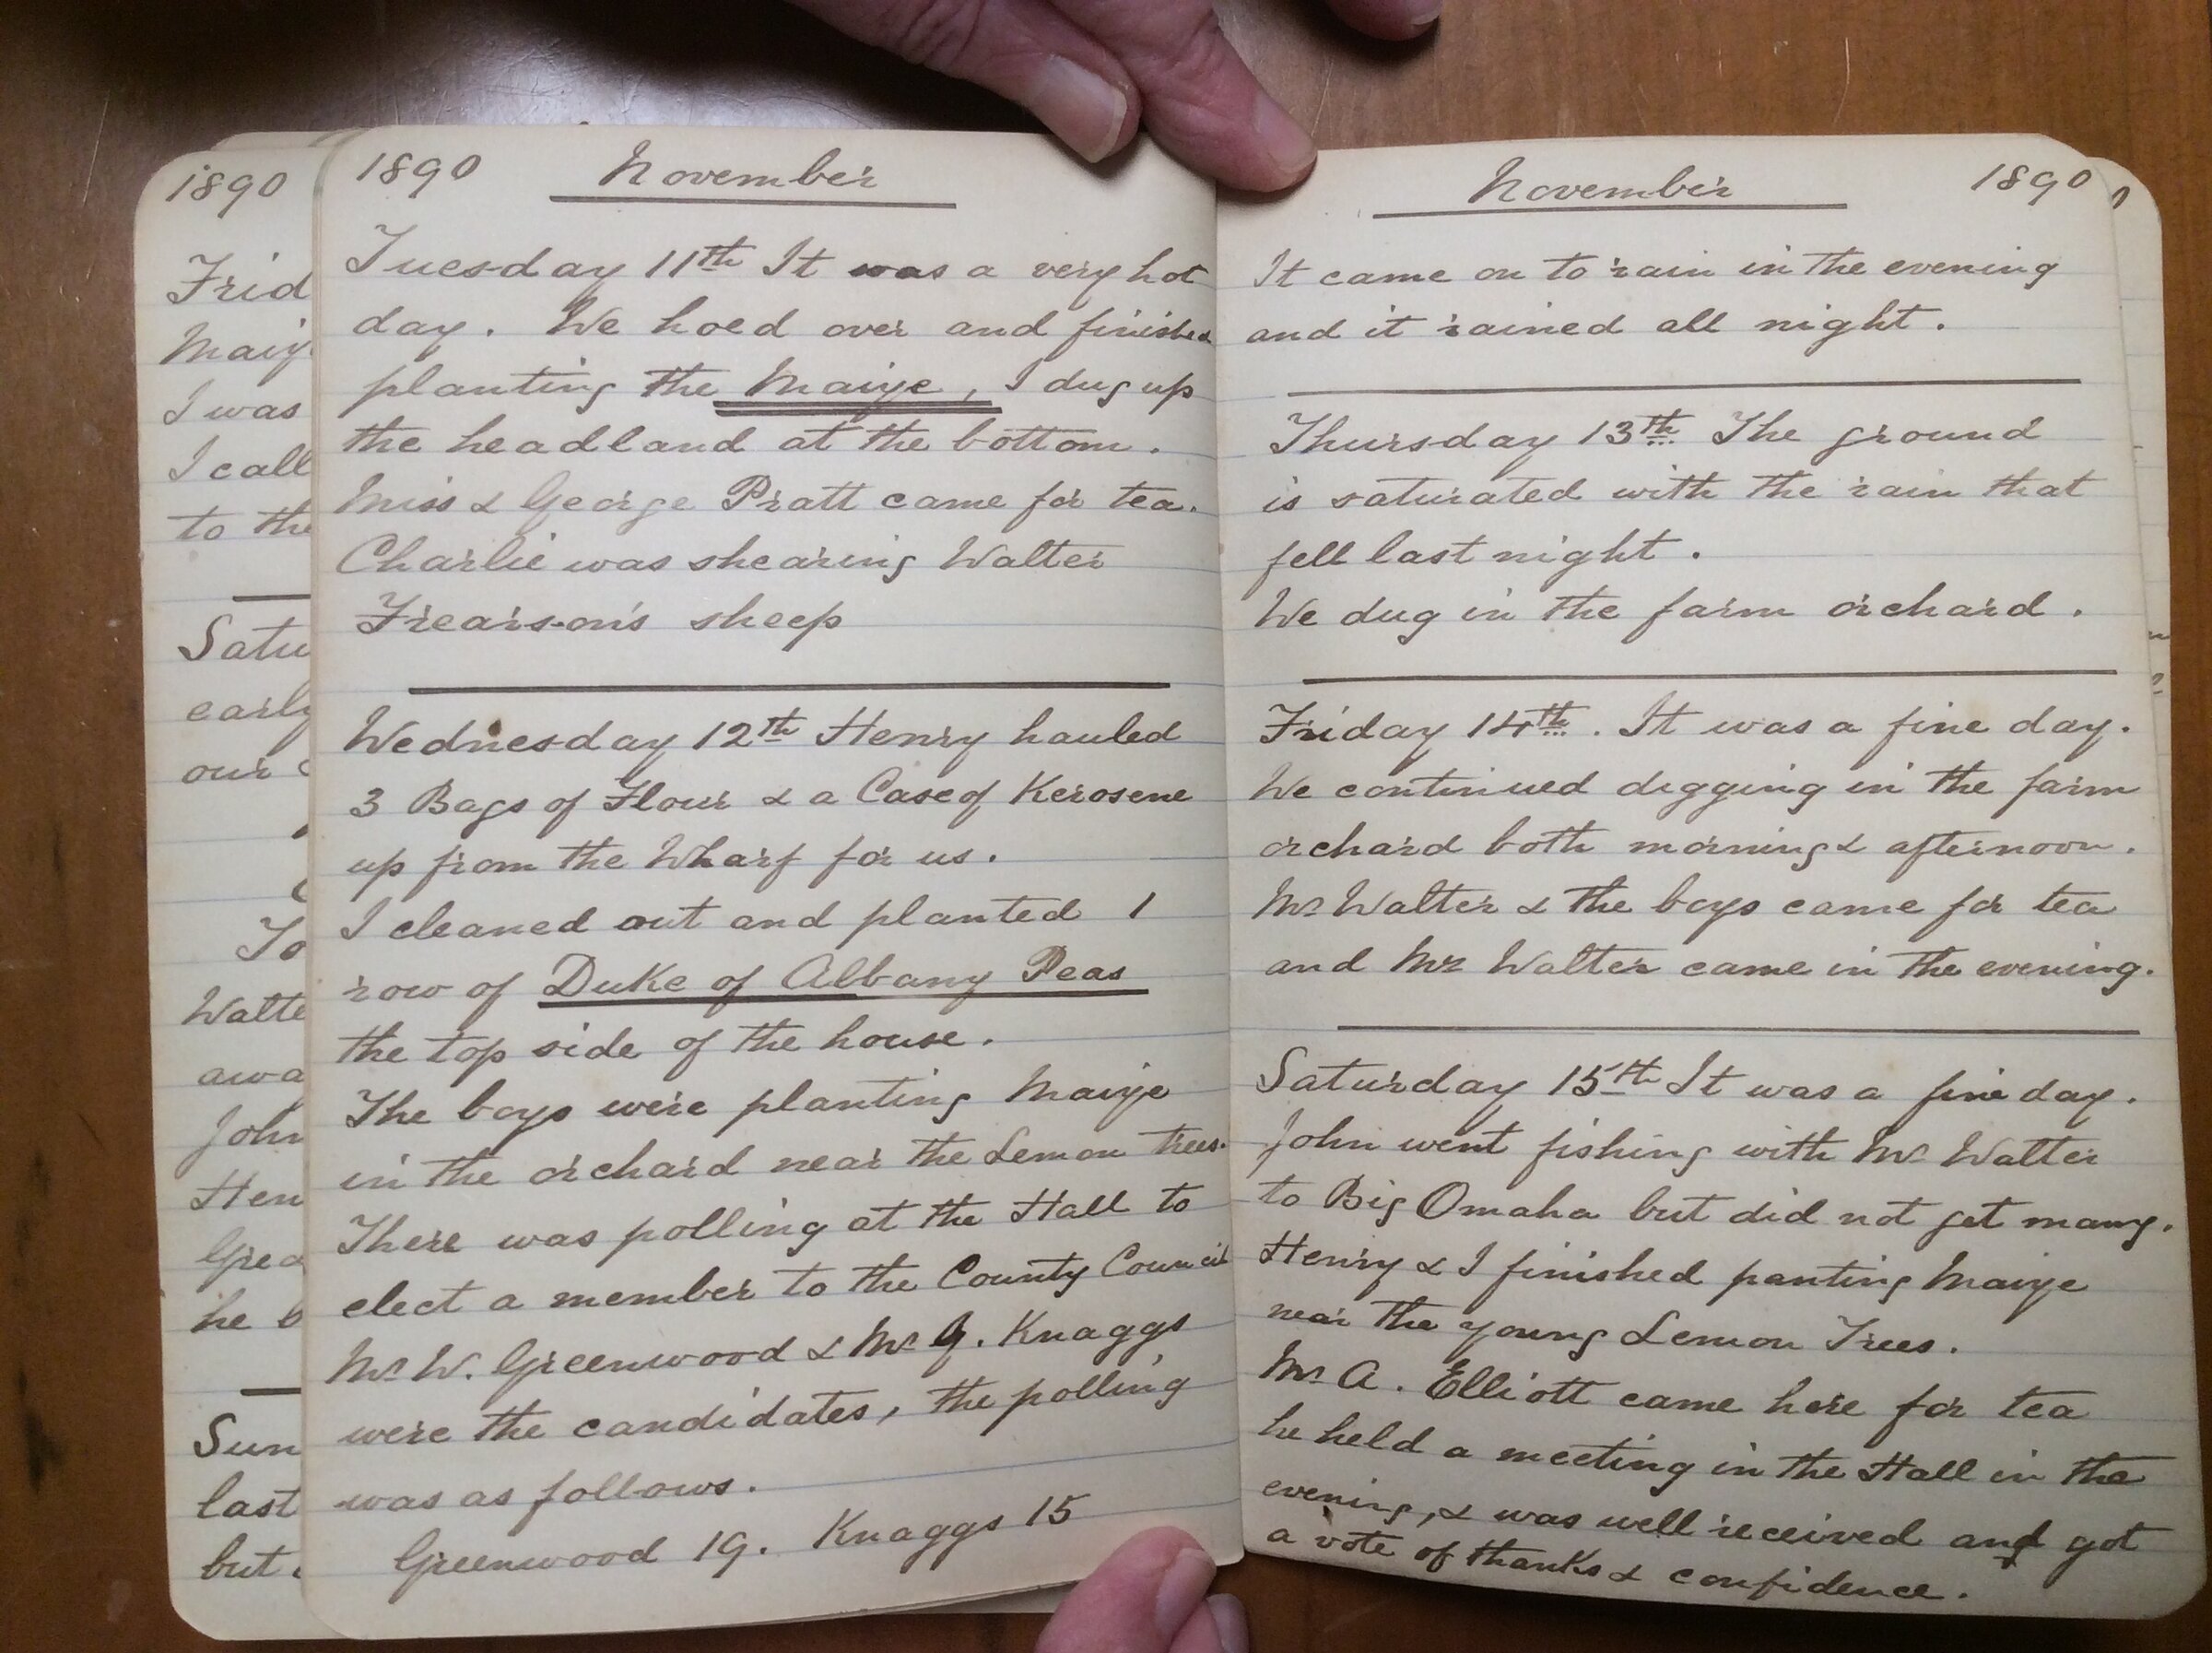 1890
Frid
I was
I call
to the
Satu
early
our
To
Walte
awa
John
Hen
he b
Sun
last
but
1890 November
Tuesday 11th It was a very hot
day. We hoed over and finished
planting the Maize, I dug up
the headland at the bottom.
Miss & George Pratt came for tea.
Charlie was shearing Walter
Frearson's sheep
Wednesday 12th Henry hauled
3 Bags of Flour & a Case of Kerosene
up from the Wharf for us.
I cleaned out and planted 1
row of Duke of Albany Peas
the top side of the house.
The boys were planting Maize
in the orchard near the Lemon trees.
There was polling at the Hall to
elect a member to the County Council
Mr W. Greenwood & Mr G. Knaggs
were the candidates, the polling
was as follows.
Greenwood 19. Knaggs 15
November 1890
It came on to rain in the evening
and it rained all night.
Thursday 13th The ground
is saturated with the rain that
fell last night.
We dug in the farm orchard.
Friday 14th. It was a fine day.
We continued digging in the farm
orchard both morning & afternoon.
Mr Walter & the boys came for tea
and Mr Walter came in the evening.
Saturday 15th It was a fine day.
John went fishing with Mr Walter
to Big Omaha but did not get many.
Henry & I finished panting Maize
near the young Lemon Trees.
Mr A. Elliott came here for tea
he held a meeting in the Hall in the
evening, & was well received and got
a vote of thanks & confidence.